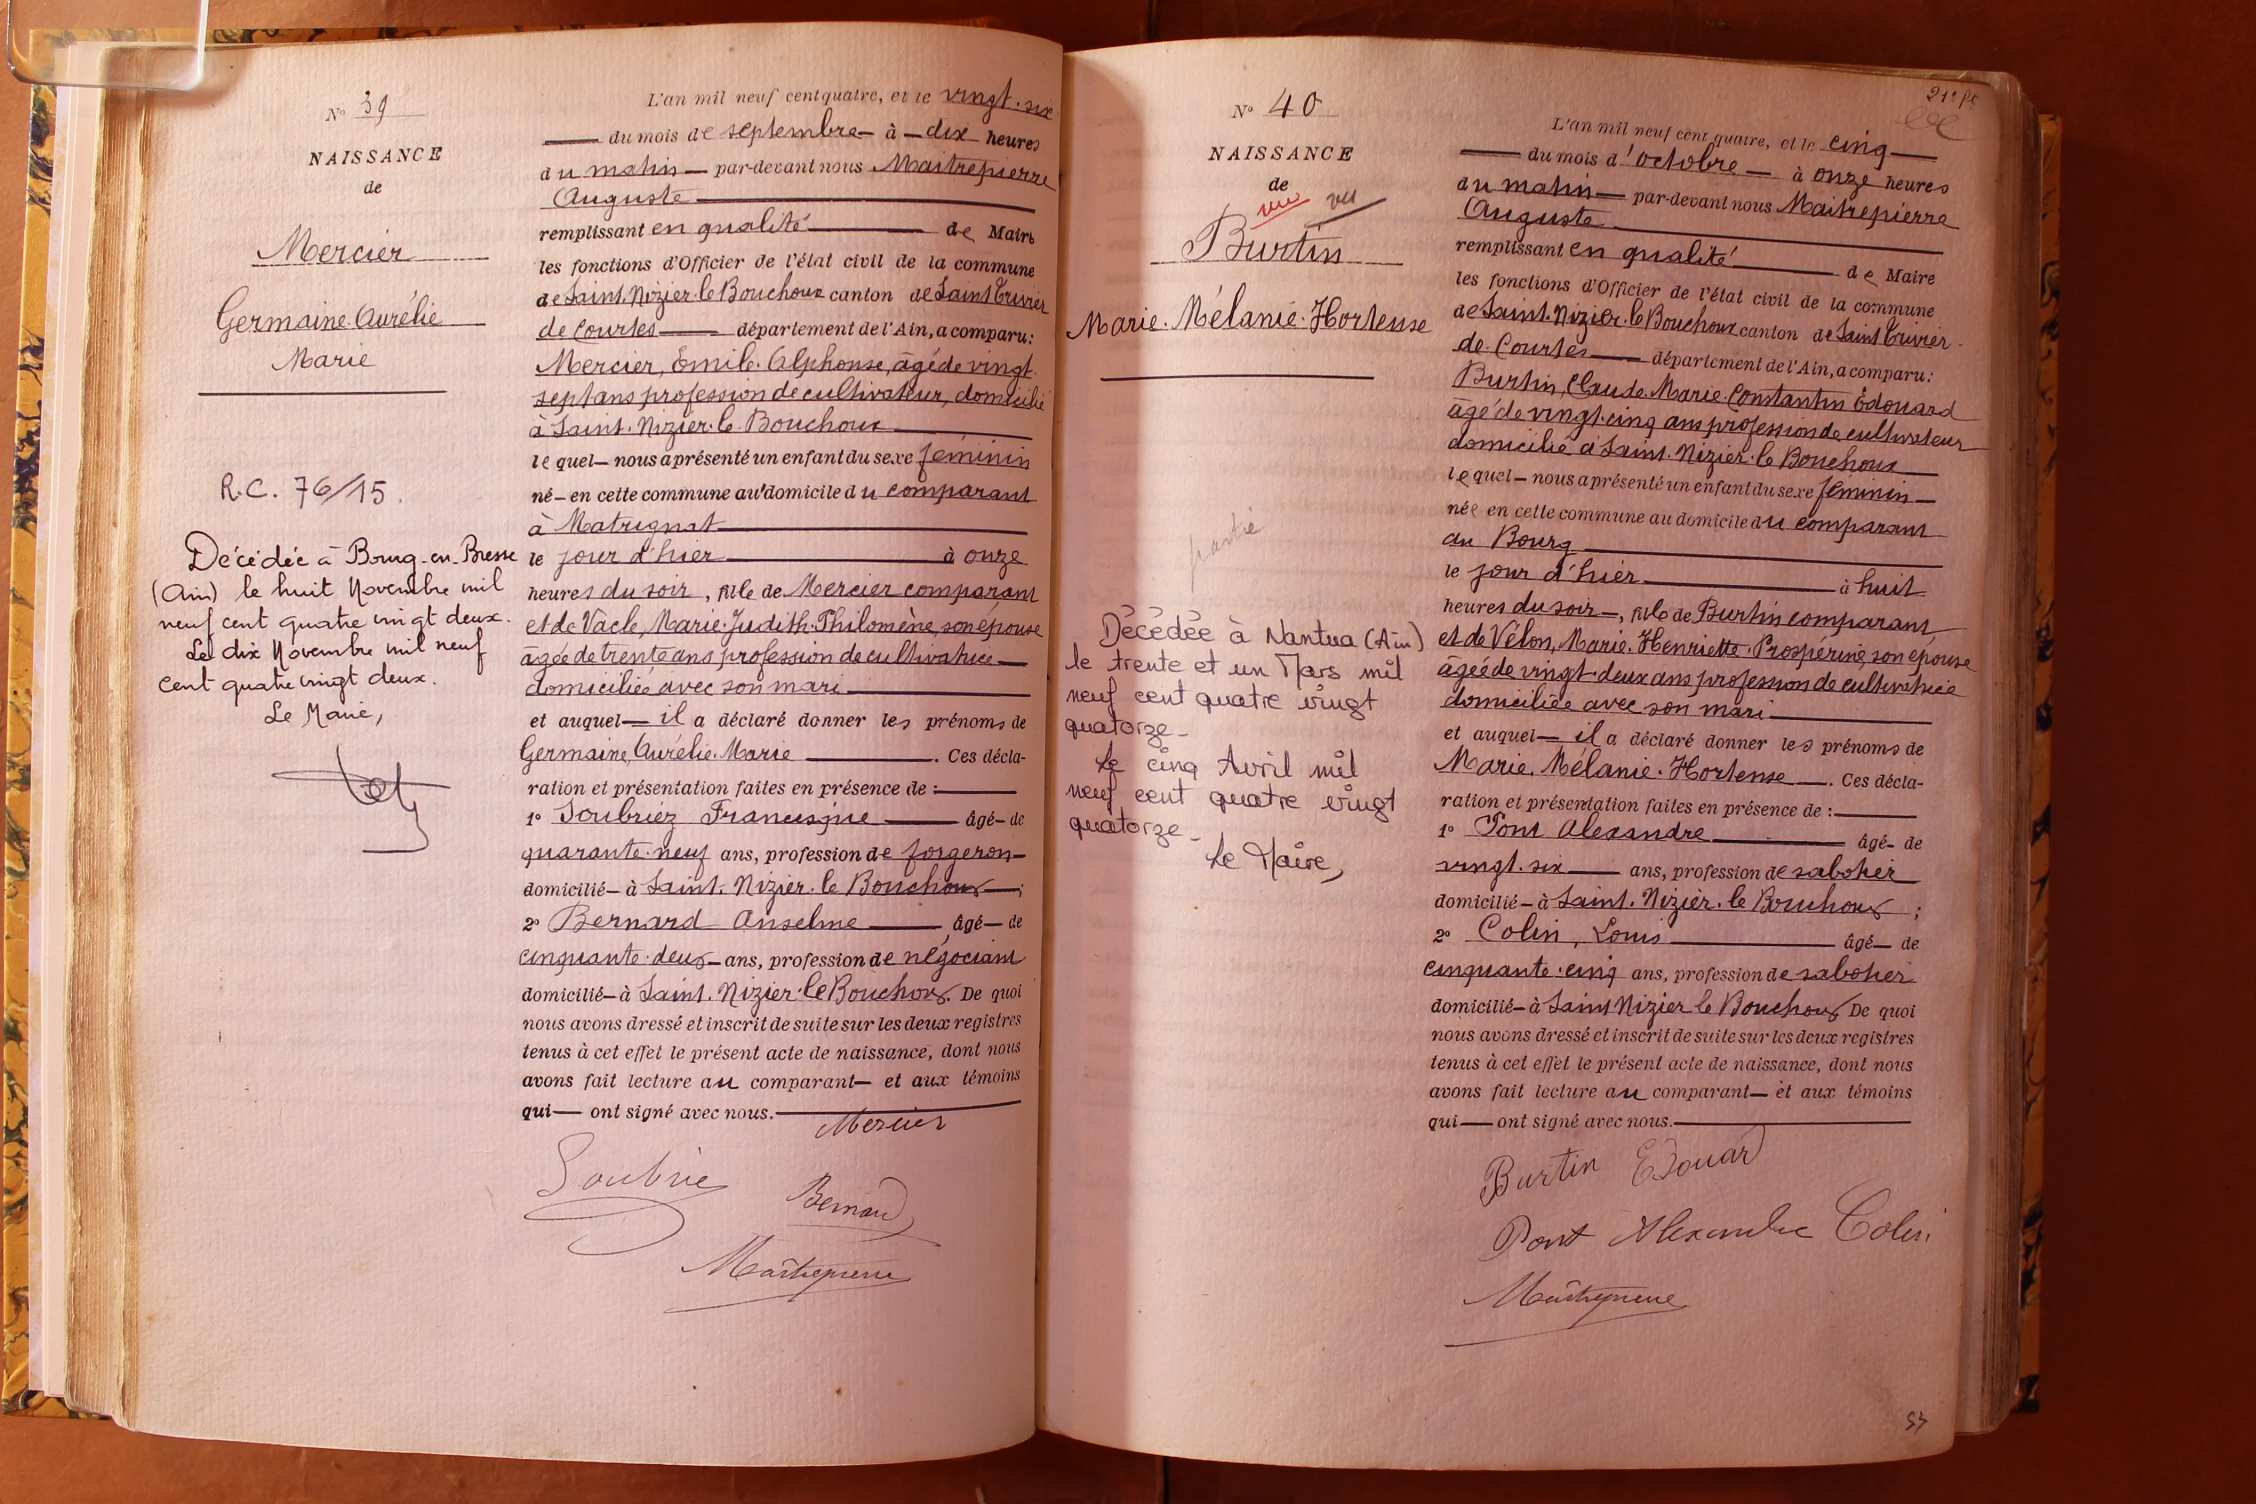 N° 39
NAISSANCE
de
Mercier
Germaine Aurélie
Marie
R.C. 76/15.
Décédée à Bourg-en-Bresse
(Ain) le huit Novembre mil
neuf cent quatre vingt deux.
Le dix Novembre mil neuf
cent quatre vingt deux.
Le Maire,
L'an mil neuf cent quatre, et le vingt-six
du mois de septembre à dix heures
du matin par-devant nous Maitrepierre
Auguste
remplissant en qualité de Maire
les fonctions d'Officier de l'état civil de la commune
de Saint-Nizier-le Bouchoux canton de Saint Trivier
de Courtes département de l'Ain, a comparu:
Mercier, Emile Alphonse, âgé de vingt
sept ans profession de cultivateur, domicilié
à Saint-Nizier-le Bouchoux
lequel nous a présenté un enfant du sexe féminin
né en cette commune au domicile du comparant
à Matrignat
le jour d'hier à onze
heures du soir, fille de Mercier comparant
et de Vacle, Marie Judith Philomène, son épouse
âgée de trente ans profession de cultivatrice
domiciliée avec son mari
et auquel il a déclaré donner les prénoms de
Germaine, Aurélie Marie. Ces décla-
ration et présentation faites en présence de :
1° Soubriez Francisque âgé de
quarante-neuf ans, profession de forgeron
domicilié à Saint-Nizier-le Bouchoux;
2° Bernard Anselme âgé de
cinquante-deux ans, profession de négociant
domicilié à Saint-Nizier-le Bouchoux. De quoi
nous avons dressé et inscrit de suite sur les deux registres
tenus à cet effet le présent acte de naissance, dont nous
avons fait lecture au comparant et aux témoins
qui ont signé avec nous.
Mercier
Soubrie Bernard
Maîtrepierre
N° 40
NAISSANCE
de
vu vu
Burtin
Marie-Mélanie-Hortense
Décédée à Nantua (Ain)
le trente et un Mars mil
neuf cent quatre vingt
quatorze
Le cinq Avril mil
neuf cent quatre vingt
quatorze
Le Maire,
L'an mil neuf cent quatre, et le cinq
du mois d'octobre à onze heures
du matin par-devant nous Maitrepierre
Auguste
remplissant en qualité de Maire
les fonctions d'Officier de l'état civil de la commune
de Saint-Nizier-le Bouchoux canton de Saint Trivier
de Courtes département de l'Ain, a comparu:
Burtin, Claude Marie Constantin Edouard
âgé de vingt-cinq ans profession de cultivateur
domicilié à Saint-Nizier-le Bouchoux
lequel nous a présenté un enfant du sexe féminin
née en cette commune au domicile du comparant
au Bourg
le jour d'hier à huit
heures du soir, fille de Burtin comparant
et de Vélon, Marie Henriette Prospérine, son épouse
âgée de vingt-deux ans profession de cultivatrice
domiciliée avec son mari
et auquel il a déclaré donner les prénoms de
Marie-Mélanie-Hortense. Ces décla-
ration et présentation faites en présence de :
1° Pont Alexandre âgé de
vingt-six ans, profession de sabotier
domicilié à Saint-Nizier-le Bouchoux;
2° Colin, Louis âgé de
cinquante-cinq ans, profession de sabotier
domicilié à Saint Nizier le Bouchoux De quoi
nous avons dressé et inscrit de suite sur les deux registres
tenus à cet effet le présent acte de naissance, dont nous
avons fait lecture au comparant et aux témoins
qui ont signé avec nous.
Burtin Edouard
Pont Alexandre Colin
Maîtrepierre
53